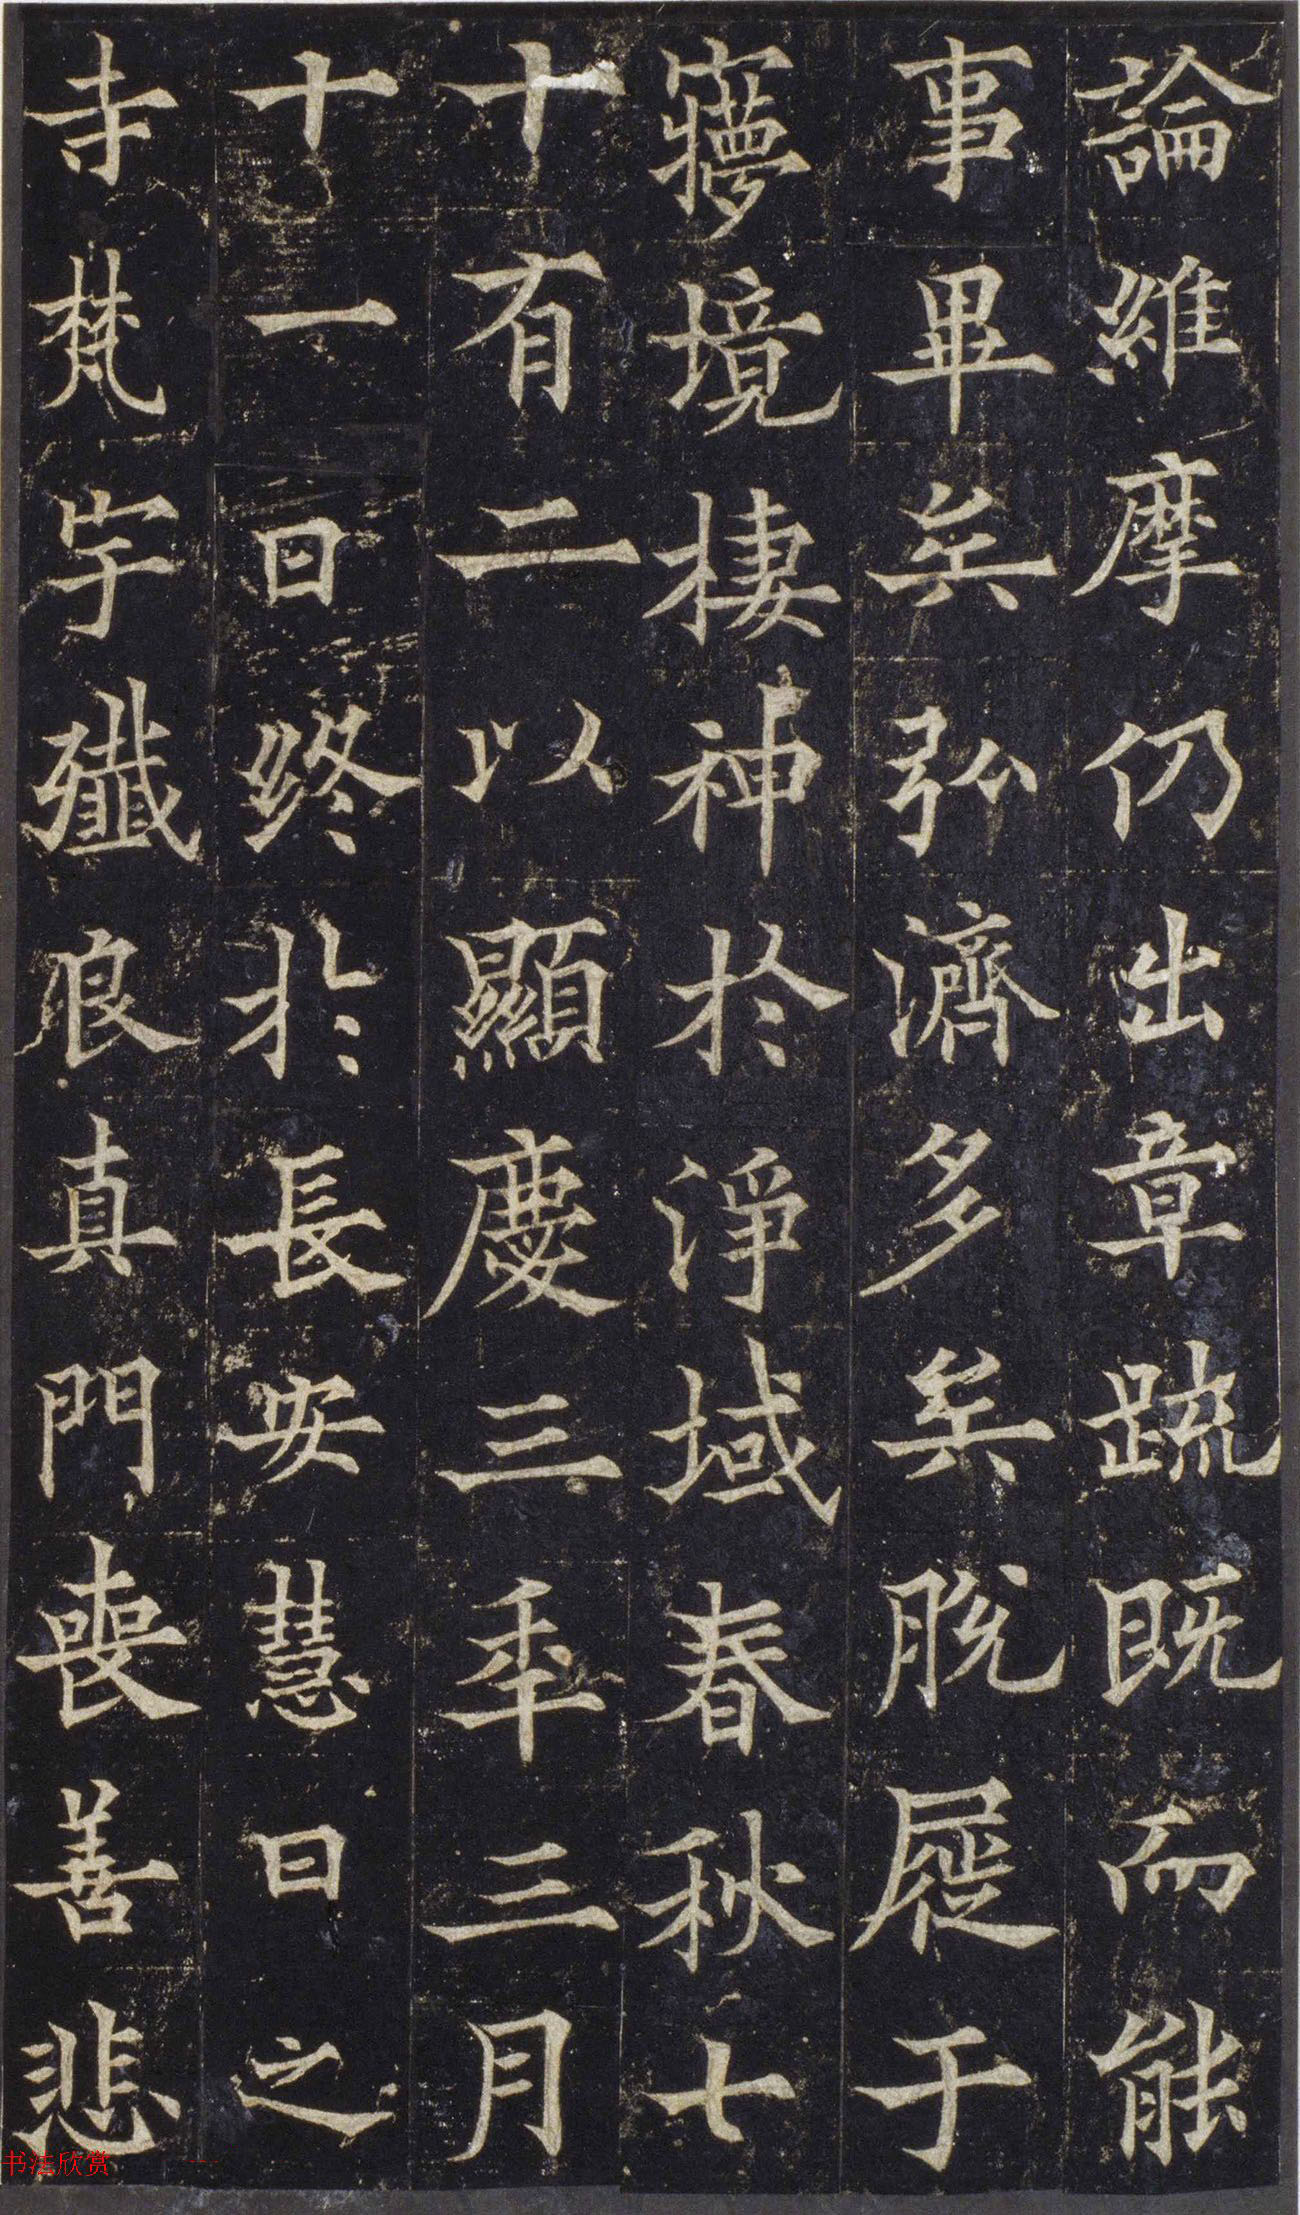 論維摩仍出章疏既而能
事畢矣弘濟多矣脫屣于
寱境棲神於淨域春秋七
十有二以顯慶三年三月
十一日終於長安慧日之
寺梵宇殲良真門喪善悲
书法欣赏